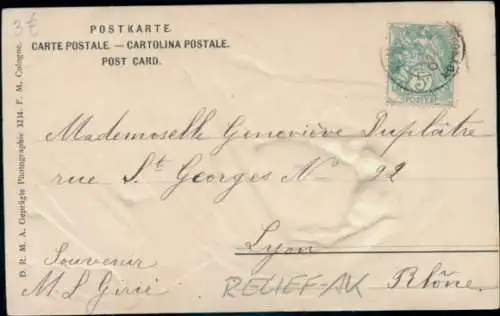 POSTKARTE
CARTE POSTALE. — CARTOLINA POSTALE.
POST CARD.
D. R. M. A. Geprägte Photographie 3334. F. M. Cologne.
Mademoiselle Geneviève Duplâtre
rue St Georges No 92
Lyon
Rhône.
Souvenir
M. L Girié
RELIEF-AK